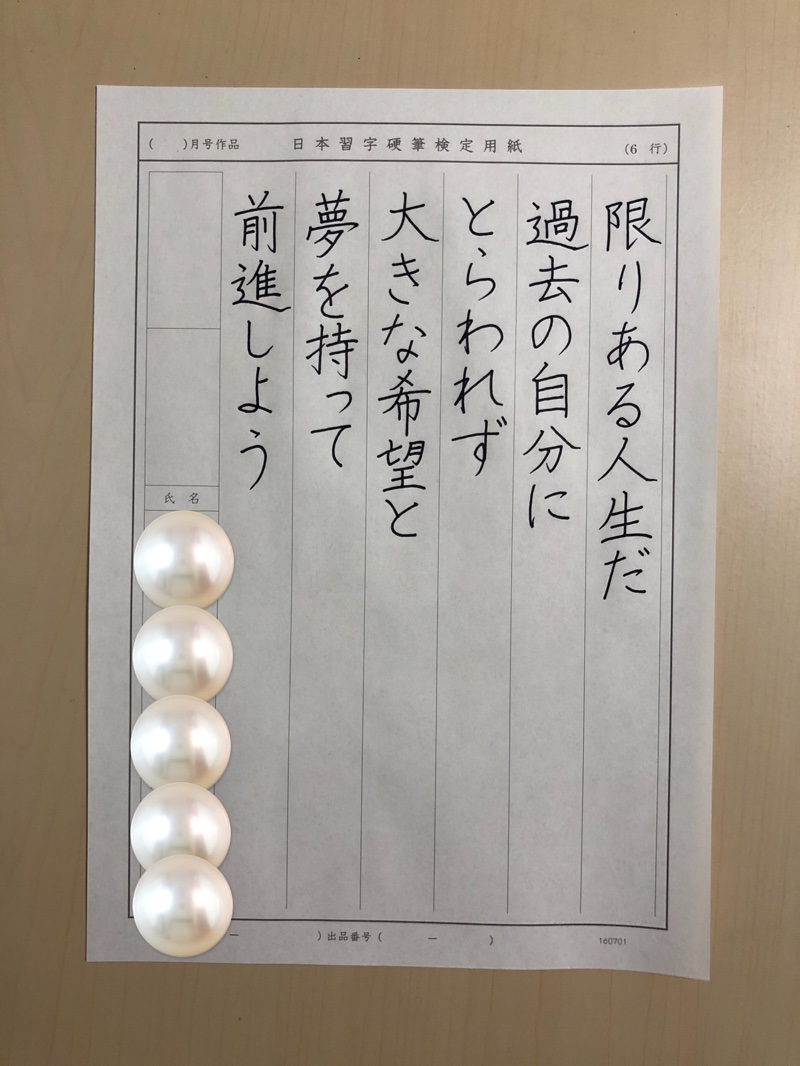 ( )月号作品 日本習字硬筆検定用紙 (6 行)
限りある人生だ
過去の自分に
とらわれず
大きな希望と
夢を持って
前進しよう
氏名
— )出品番号( — )
160701